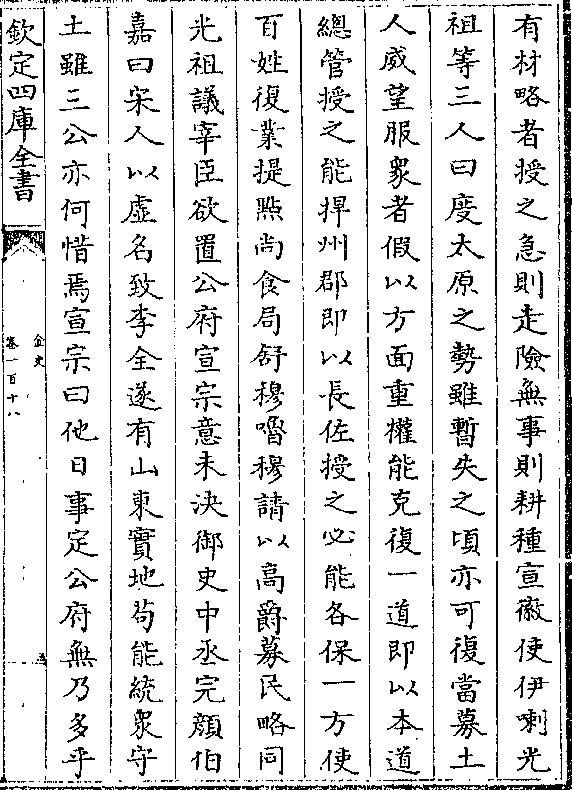 有材略者授之急則走險無事則耕種宣徽使伊喇光
祖等三人曰度太原之勢雖暫失之頃亦可復當募土
人威望服衆者假以方面重權能克復一道即以本道
總管授之能捍州郡即以長佐授之必能各保一方使
百姓復業提點尚食局舒穆嚕穆請以高爵募民略同
光祖議宰臣欲置公府宣宗意未決御史中丞完顔伯
嘉曰宋人以虚名致李全遂有山東實地茍能統衆守
土雖三公亦何惜焉宣宗曰他日事定公府無乃多乎
欽定四庫全書
金史
卷一百十八